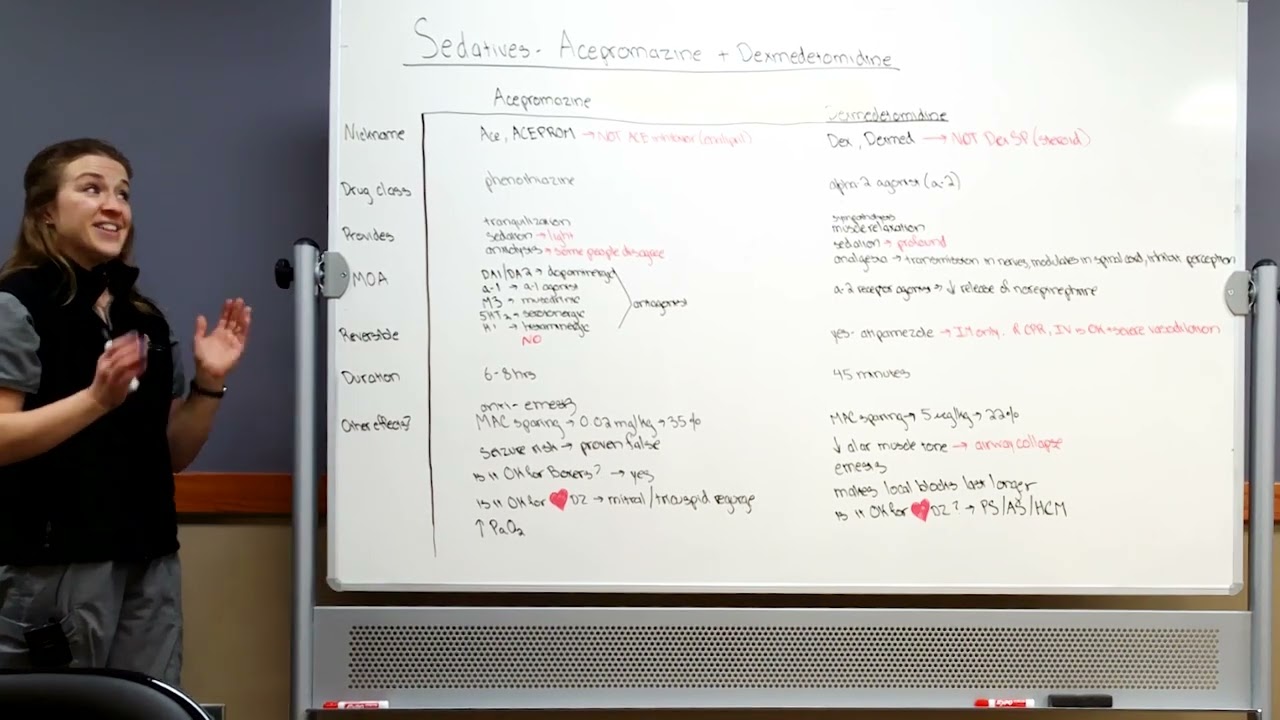 Sedatives - Acepromazine + Dexmedetomidine
Acepromazine
Dexmedetomidine
Nickname
Ace, ACEPROM → NOT ACE inhibitor (enalapril)
Dex, Dexmed → NOT Dex SP (steroid)
Drug class
phenothiazine
alpha-2 agonist (a-2)
Provides
tranquilization
sedation → light
anxiolysis → some people disagree
sympatholysis
muscle relaxation
sedation → profound
analgesia → transmission in nerves, modulates in spinal cord, inhibits perception
MOA
DA1/DA2 → dopaminergic
a-1 → a-1 agonist
M3 → muscarinic
5HT2 → serotonergic
H1 → histaminergic
antagonist
a-2 receptor agonist → ↓ release of norepinephrine
Reversible
NO
yes - atipamezole → IM only. if CPR, IV is OK → severe vasodilation
Duration
6-8 hrs
45 minutes
Other effects?
anti-emesis
MAC sparing → 0.02 mg/kg → 35%
seizure risk → proven false
is it OK for Boxers? → yes
is it OK for ❤ DZ → mitral/tricuspid regurge
↑ PaO2
MAC sparing → 5 ucg/kg → 22%
↓ alar muscle tone → airway collapse
emesis
makes local blocks last longer
is it OK for ❤ DZ? → PS/AS/HCM
EXPO